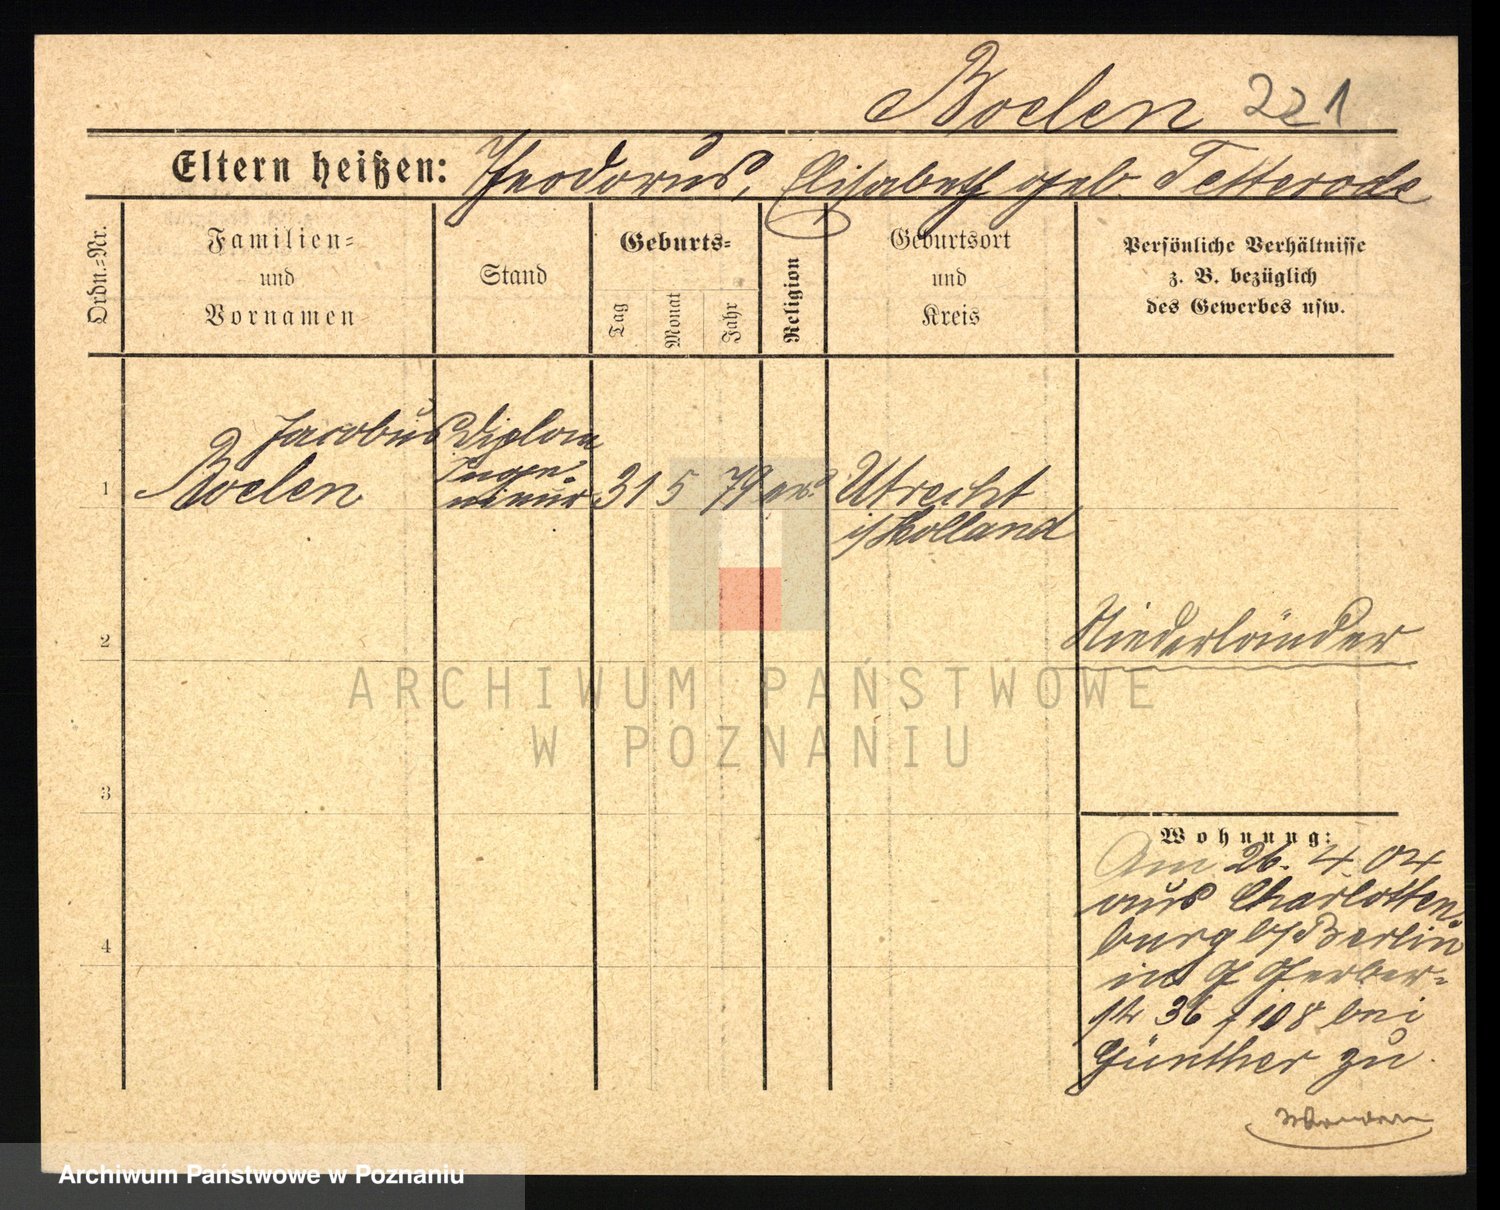 Boelen 221
Eltern heißen: Theodorus, Elisabeth geb. Tetterode
Ordn.-Nr.
Familien-
und
Vornamen
Stand
Geburts-
Tag
Monat
Jahr
Religion
Geburtsort
und
Kreis
Persönliche Verhältnisse
z. B. bezüglich
des Gewerbes usw.
1
Jacobus
Boelen
Diplom
Inge-
nieur
31 5 79 ev. Utrecht
i/Holland
2
Niederländer
3
Wohnung:
Am 26. 4. 04
aus Charlotten-
burg b/Berlin
in Gerber-
str 36 108 bei
Günther zu
4
ARCHIWUM PAŃSTWOWE
W POZNANIU
Archiwum Państwowe w Poznaniu